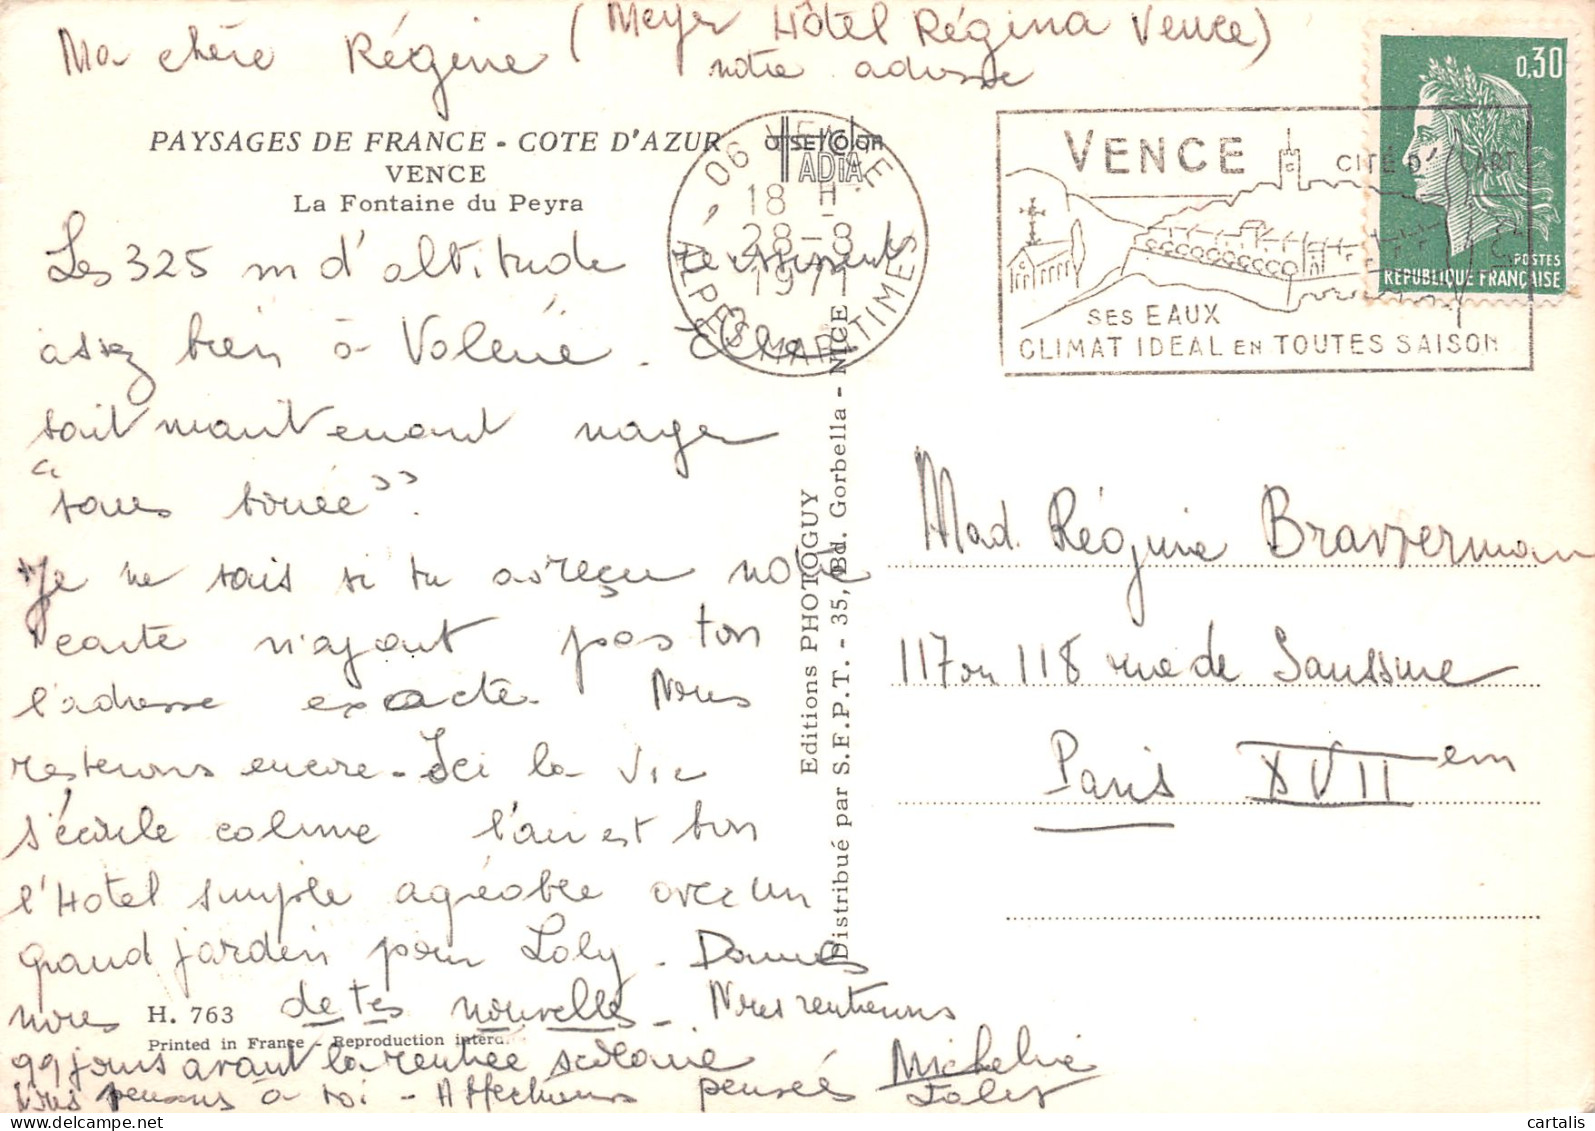 Ma chère Régine (Meyer Hôtel Régina Vence)
notre adresse
PAYSAGES DE FRANCE - COTE D'AZUR
VENCE
La Fontaine du Peyra
OFFSETCOLOR
ADIA
06 VENCE
18 H
28-8
1971
ALPES MARITIMES
VENCE
CITÉ D'ART
SES EAUX
CLIMAT IDEAL EN TOUTES SAISON
0,30
POSTES
REPUBLIQUE FRANÇAISE
Les 325 m d'altitude réussissent
assez bien à Valérie. Elle
sait maintenant nager
"sans bouée"
Je ne sais si tu as reçu notre
carte n'ayant pas ton
l'adresse exacte. Nous
resterons encore. Ici la vie
s'écoule calme l'air est bon
l'Hotel simple agréable avec un
grand jardin pour Loly. Donnes
nous de tes nouvelles. Nous rentrerons
H. 763
Printed in France - Reproduction interd.
99 jours avant la rentrée scolaire Micheline
Nous pensons à toi - Affectueuses pensées Loly
Editions PHOTOGUY
Distribué par S.E.P.T. - 35, Bd. Gorbella - NICE
Mad. Régine Braverman
117 ou 118 rue de Saussure
Paris XVII em
cartalis